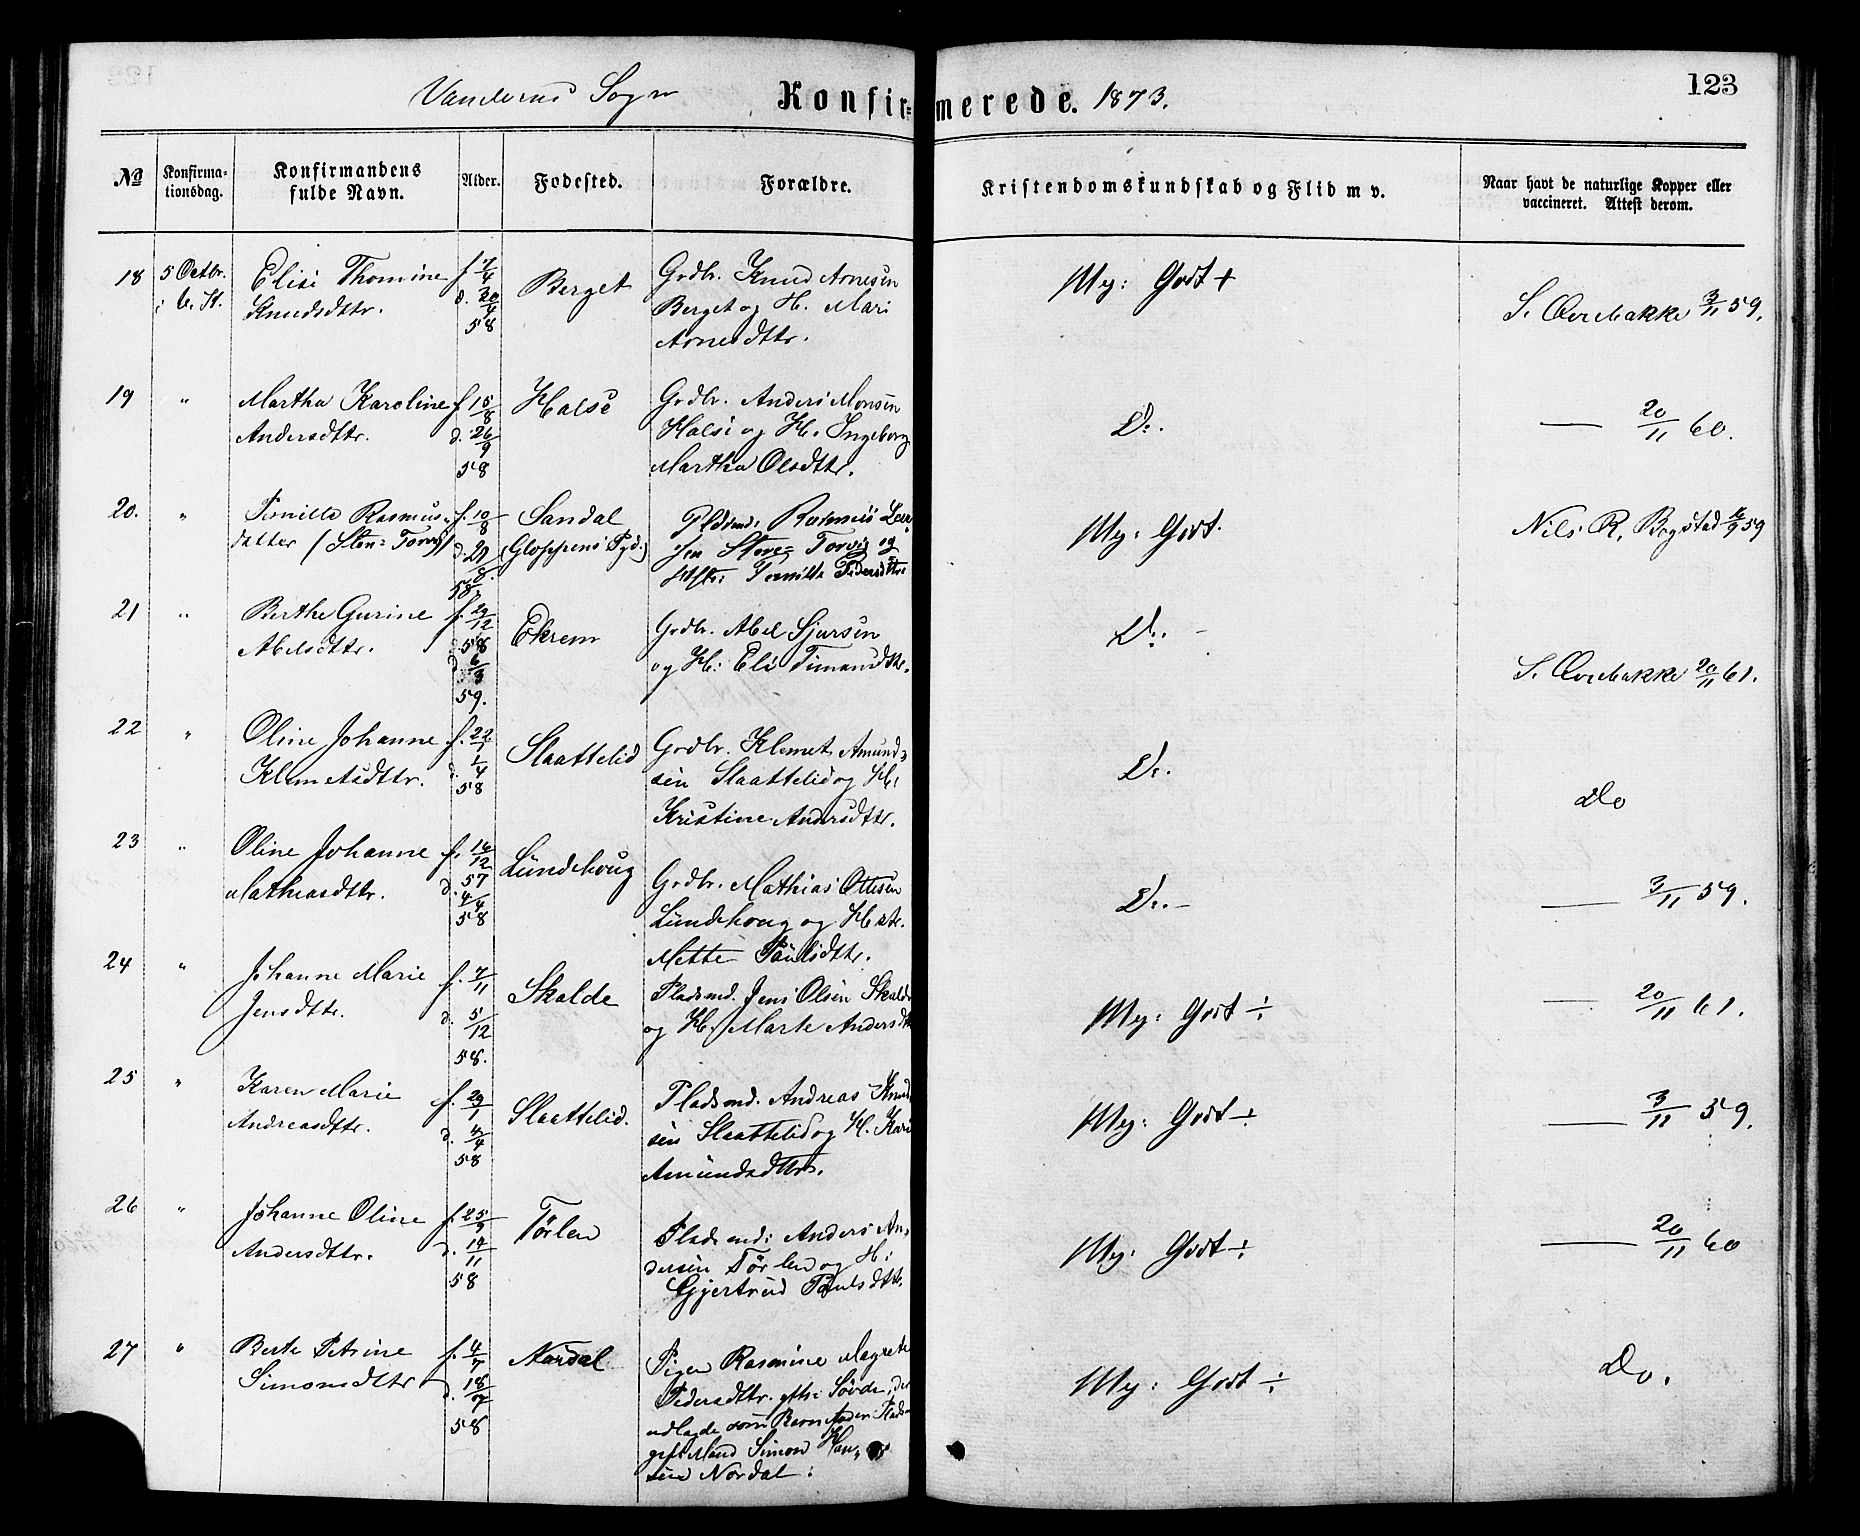 Konfirmerede. 1873.
123
№
Konfirma-
tionsdag.
Konfirmandens
fulde Navn.
Alder.
Fødested.
Forældre.
Kristendomskundskab og Flid m v.
Naar havt de naturlige Kopper eller
vaccineret. Attest derom.
18
5 Octbr.
Elise Thomine
Knudsdttr.
f. 7/4
d. 20/4
58
Berget
Grdbr. Knud Arnesen
Berget og H. Mari
Arnesdttr.
Mg: Godt +
S. Øvrebakke 3/11 59.
19
"
Martha Karoline
Andersdttr.
f. 15/8
d. 26/9
58
Halse
Grdbr. Anders Monsen
Halse og H. Ingeborg
Martha Olsdttr.
D:.
— 20/11 60.
20.
"
Pernille Rasmus-
datter
f. 10/8
d. 29/8
58.
Sandal
(Gloppens Pgd.)
Pladsmd. Rasmus
Pernille Pedersdttr
Mg: Godt.
Nils R. Bogstad 59
21
"
Berthe Gurine
Abelsdttr.
f. 29/12
58
d. 6/3
59.
Ekrem
Grdbr. Abel Sjursen
og H: Eli
D:. -
S. Øvrebakke 20/11 61.
22
"
Oline Johanne
Klemetsdttr.
f. 22/1
d. 1/4
58
Slaattelid
Grdbr. Klemet Amund-
sen Slaattelid og H.
Kristine Andersdttr.
D:.
Do
23
"
Oline Johanne
Mathiasdttr.
f. 16/12
57
d. 4/4
58
Lundehoug
Grdbr. Mathias Ottesen
Lundehoug og Hstr.
Mette Paulsdttr.
D:. -
— 3/11 59.
24
"
Johanne Marie
Jensdttr.
f. 7/11
d. 5/12
58.
Skolde
Pladsmd. Jens Olsen Skolde
og H. Marte Andersdtr
Mg: Godt ÷
— 20/11 61.
25
"
Karen Marie
Andreasdttr.
f. 29/1
d. 4/4
58
Slaattelid.
Pladsmd. Andreas Knud-
sen Slaattelid og H. Kari
Amundsdttr.
Mg: Godt ÷
— 3/11 59.
26
"
Johanne Oline
Andersdttr.
f. 25/9
d. 14/11
58
Tørlen
Pladsmd: Anders An-
dersen Tørlen og H:
Gjertrud Paulsdttr.
Mg: Godt ÷
— 20/11 60
27
"
Berte Petrine
Simonsdttr
f. 4/7
d. 18/7
58
Nordal
Pigen Rasmine Magrete
Pedersdttr.
udlagde som Barnefader
gift Mand Simon Han-
sen Nordal.
Mg: Godt ÷
Do.